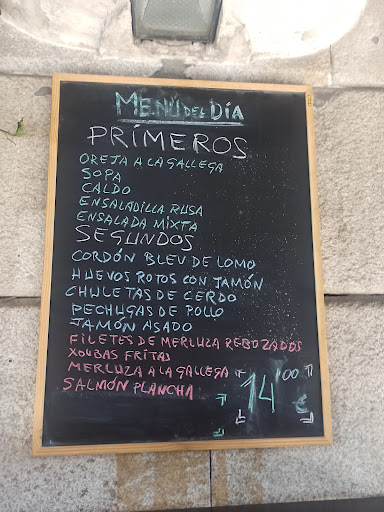 MENÚ DEL DÍA
PRÍMEROS
OREJA A LA GALLEGA
SOPA
CALDO
ENSALADILLA RUSA
ENSALADA MIXTA
SEGUNDOS
CORDÓN BLEU DE LOMO
HUEVOS ROTOS CON JAMÓN
CHULETAS DE CERDO
PECHUGAS DE POLLO
JAMÓN ASADO
FILETES DE MERLUZA REBOZADOS
XOUBAS FRITAS
MERLUZA A LA GALLEGA
SALMÓN PLANCHA
14'00 €